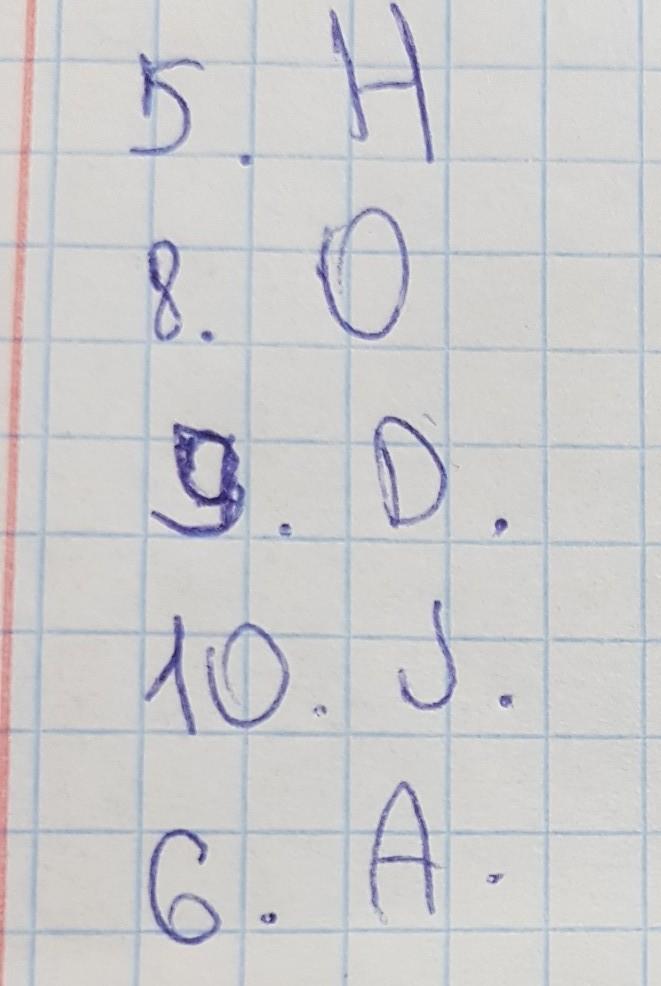 5. H
8. O
9. D.
10. J.
6. A.